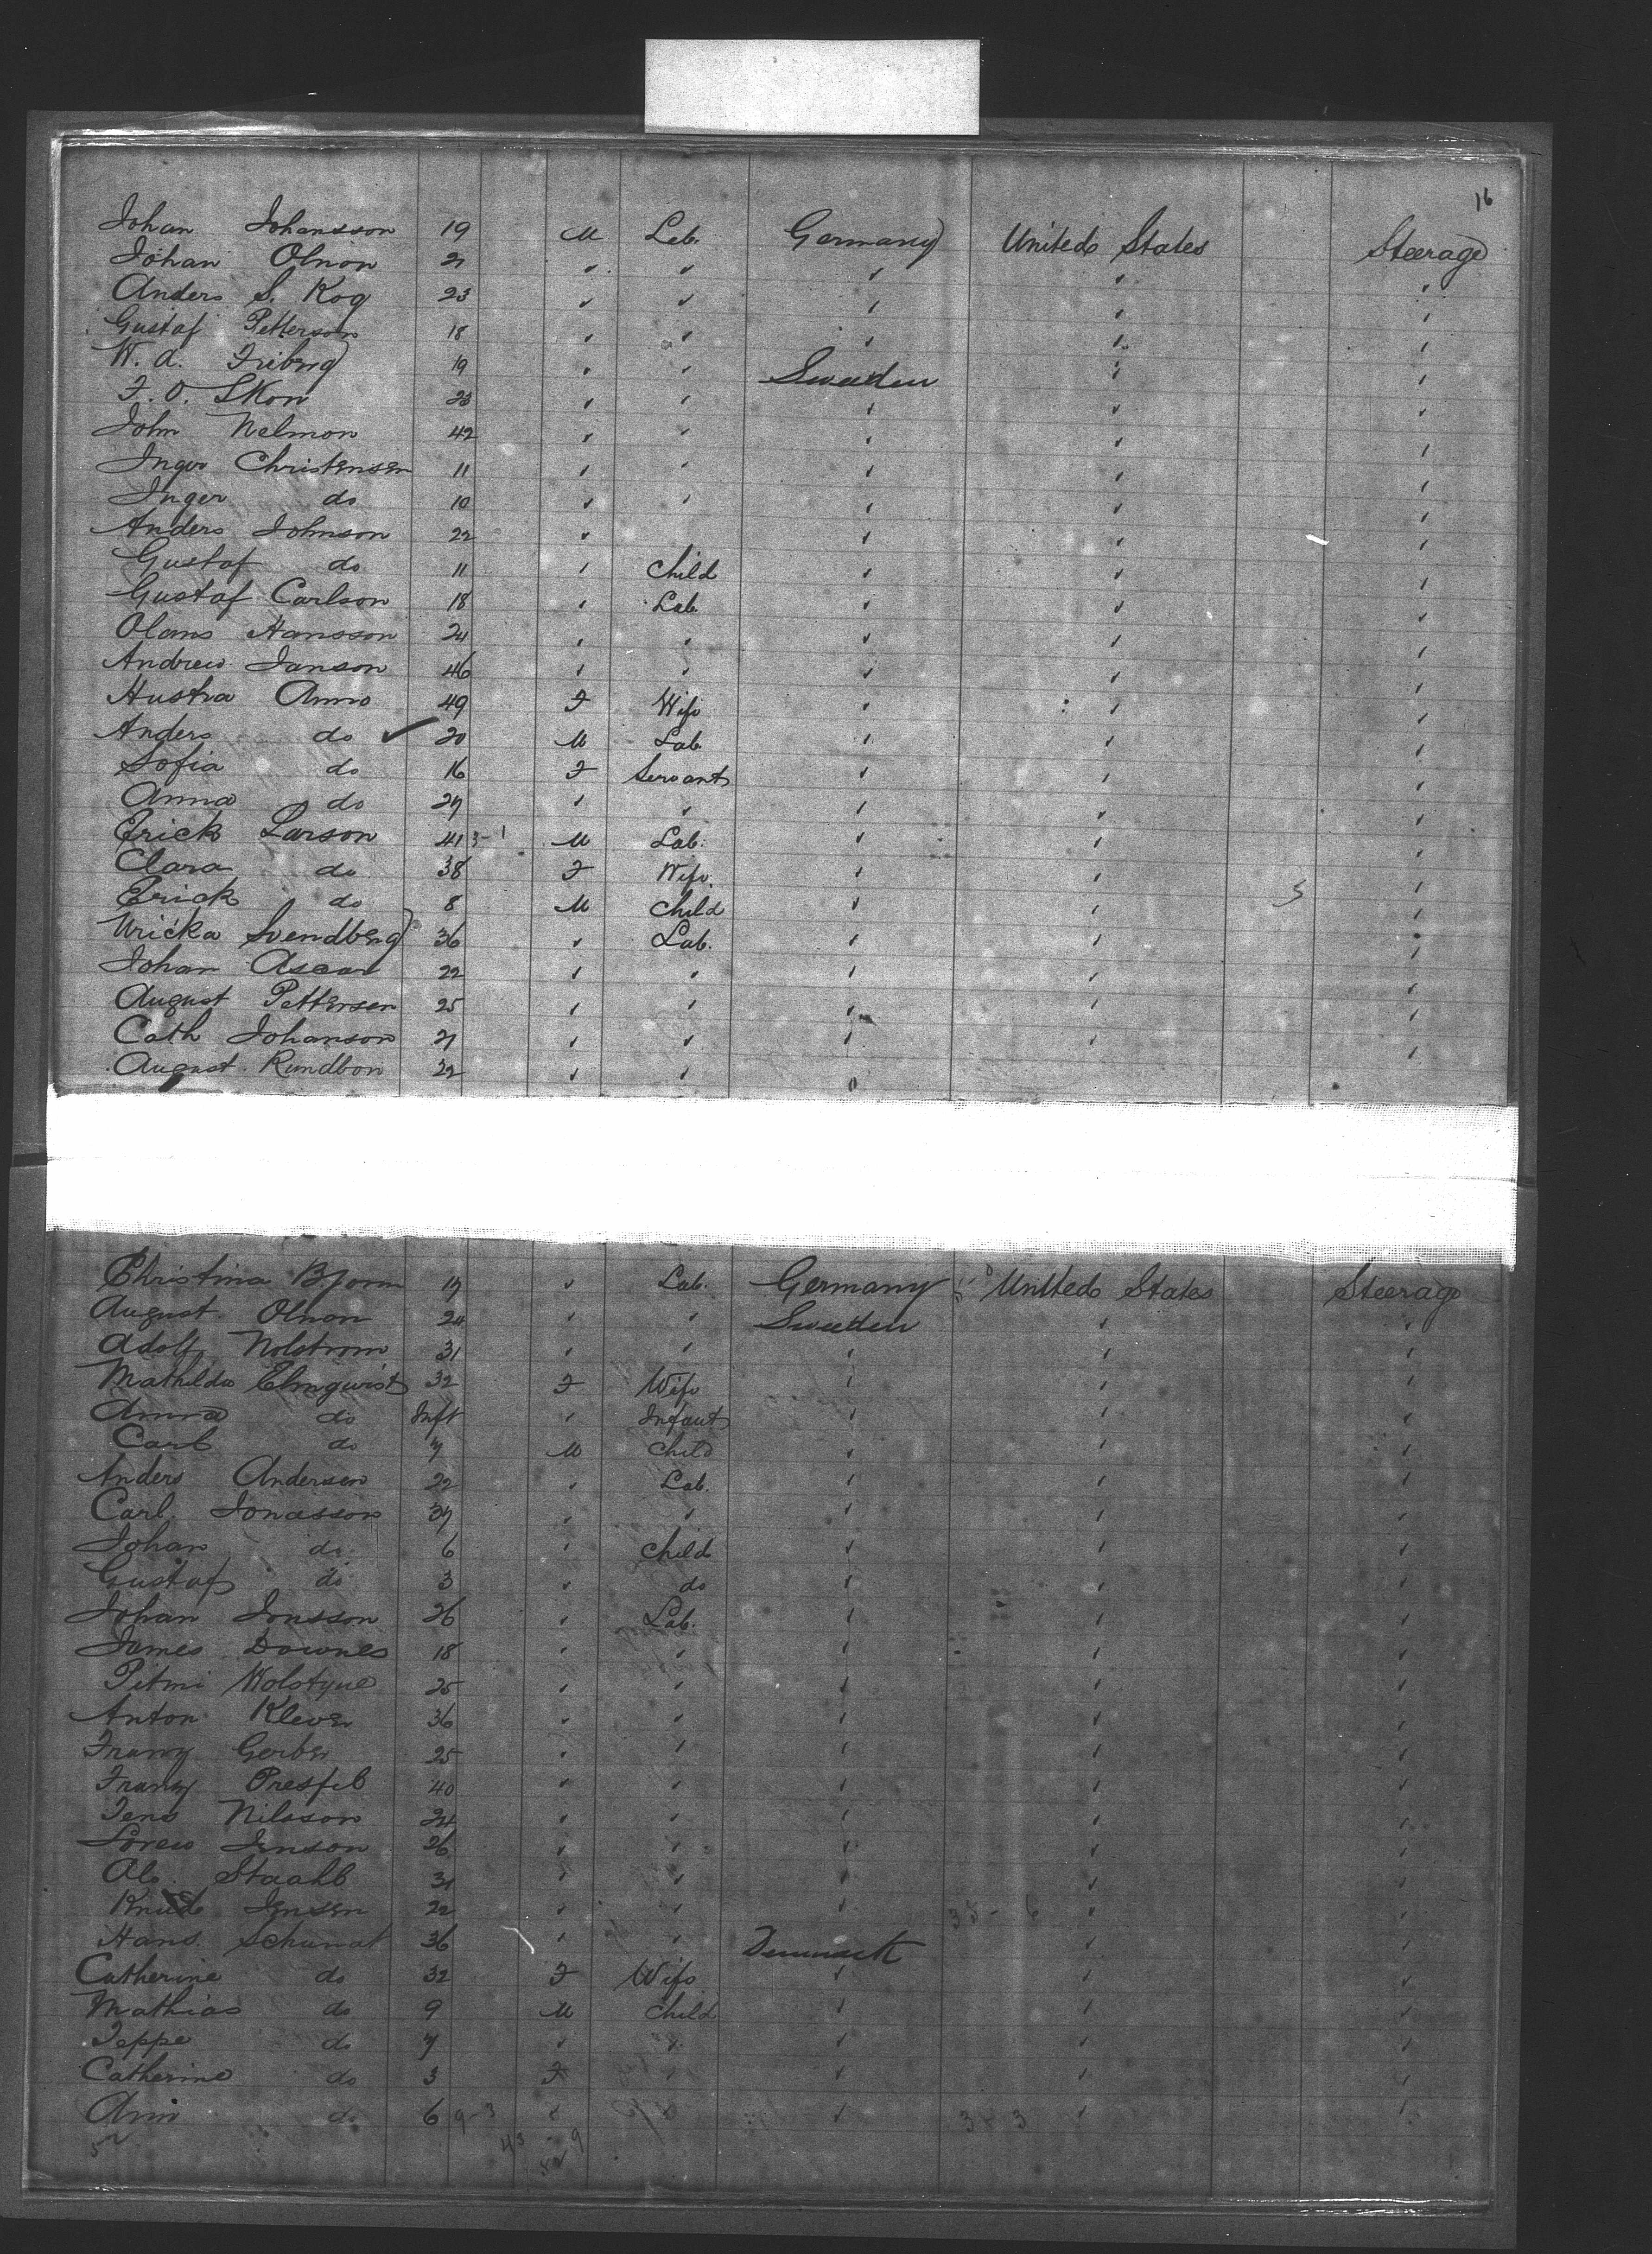 16
Johan Johansson 19 M Lab. Germany United States Steerage
Johan Olnon 21 " " " " "
Anders S. Kog 23 " " " " "
Gustaf Petterson 18 " " " " "
W. A. Friberg 19 " " Sweeden " "
F. O. Skon 23 " " " " "
John Nelmon 42 " " " " "
Inger Christensen 11 " " " " "
Inger do 10 " " " " "
Anders Johnson 22 " " " "
Gustaf do 11 " Child " " "
Gustaf Carlson 18 " Lab. " " "
Olans Hansson 24 " " " " "
Andrew Janson 46 " " " " "
Hustra Anna 49 F Wife " " "
Anders do ✓ 20 M Lab " " "
Sofia do 16 F Servant " " "
Anna do 27 " " " " "
Erick Larson 41 3-1 M Lab. " " "
Clara do 38 F Wife " " "
Erick do 8 M Child " " "
Uricka Svendberg 36 " Lab. " " "
Johan Ascar 22 " " " " "
August Pettersen 25 " " " " "
Cath Johanson 21 " " " " "
August Rundbon 22 " " "
Christina Bjorn 17 " Lab. Germany United States Steerage
August Olnon 24 " " Sweeden " "
Adolf Nolstrom 31 " " " " "
Mathilda Elmquist 32 F Wife " " "
Anna do Inft " Infant " " "
Carl do 7 M Child " " "
Anders Andersen 22 " Lab. " " "
Carl. Jonasson 37 " " " " "
Johan do. 6 " Child " " "
Gustaf do 3 " do " " "
Johan Jonsson 26 " Lab. " " "
James Downes 18 " " " " "
Pitmi Wolstyue 25 " " " " "
Anton Klever 36 " " " " "
Franz Gerber 25 " " " " "
Franz Presfil 40 " " " " "
Jens Nilsson 24 " " " " "
Soren Jenson 26 " " " " "
Al. Staahl 31 " " " " "
Knud Jensen 22 " " " " "
Hans. Schunat 36 " " Denmark " "
Catherine do 32 F Wife " " "
Mathias do 9 M Child " " "
Jeppe do 7 " " " " "
Catherine do 3 F " " " "
Ann do 6 9-3 " " " "
43 - 9
52